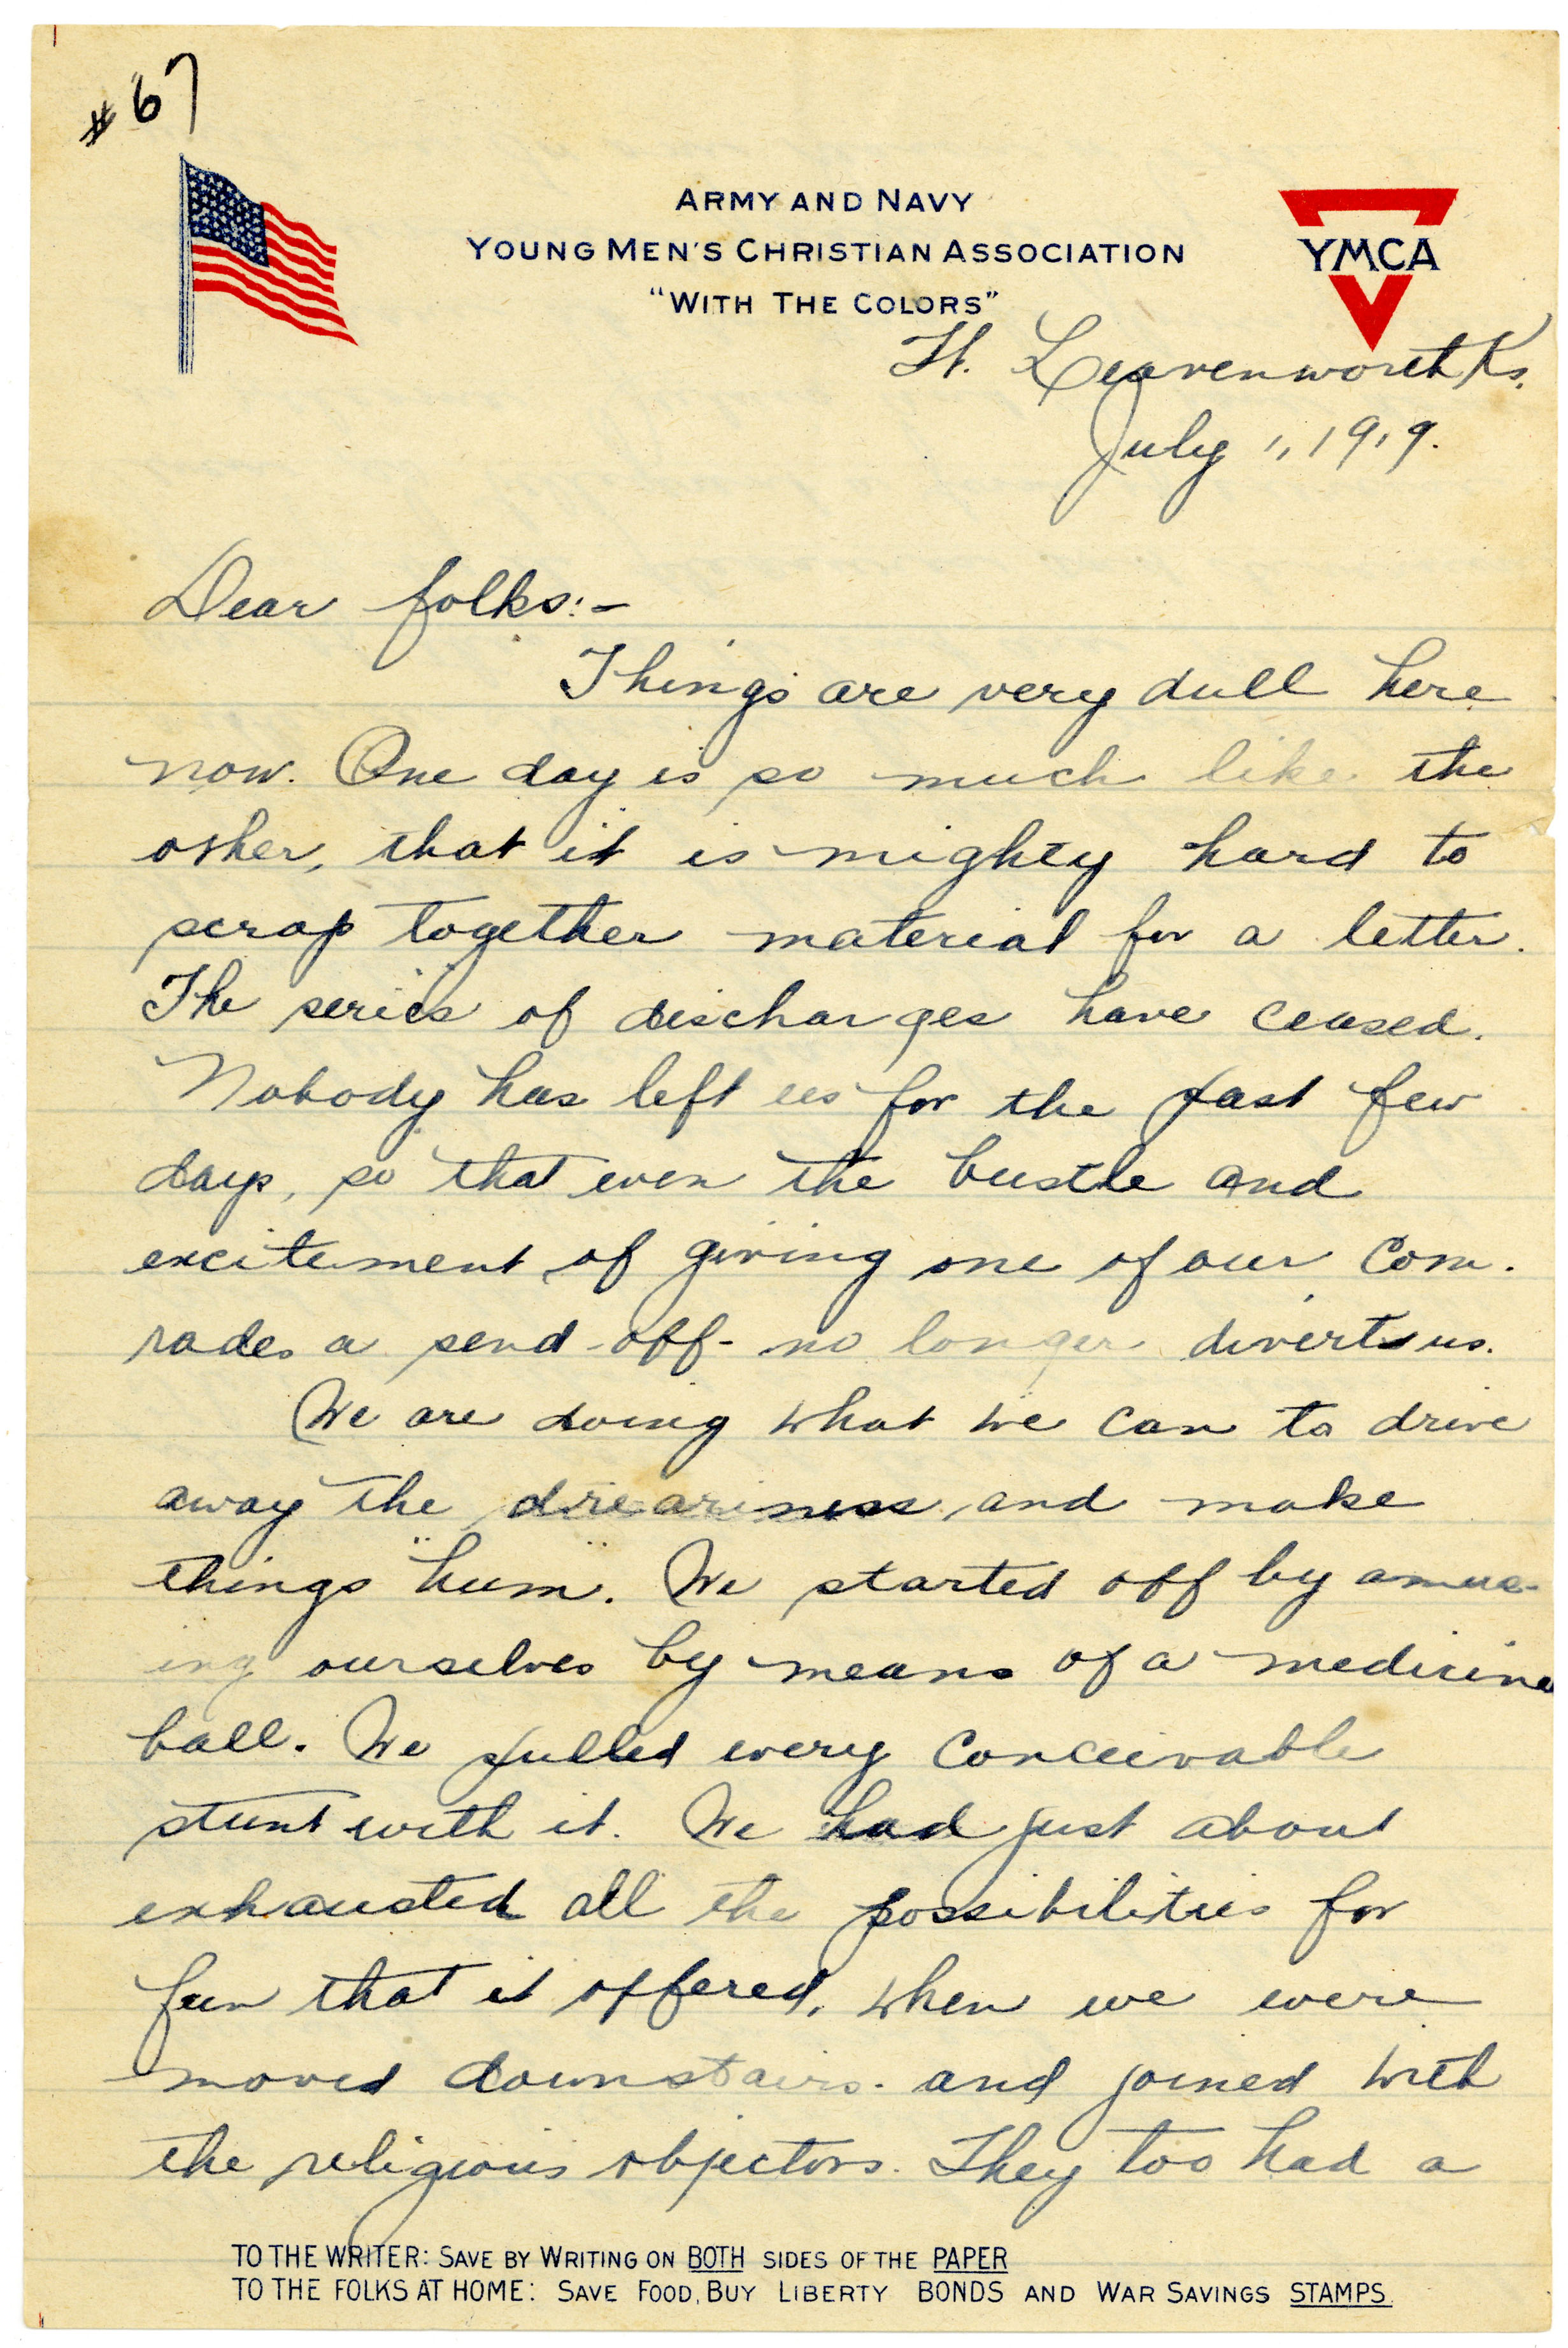 #67
ARMY AND NAVY
YOUNG MEN'S CHRISTIAN ASSOCIATION
"WITH THE COLORS"
YMCA
Ft. Leavenworth Ks.
July 1, 1919.
Dear folks:-
Things are very dull here
now. One day is so much like the
other, that it is mighty hard to
scrap together material for a letter.
The series of discharges have ceased.
Nobody has left us for the past few
days, so that even the bustle and
excitement of giving one of our com-
rades a send-off- no longer diverts us.
We are doing what we can to drive
away the dreariness and make
things "hum". We started off by amus-
ing ourselves by means of a medicine
ball. We pulled every conceivable
stunt with it. We had just about
exhausted all the possibilities for
fun that it offered, when we were
moved downstairs. and joined with
the religious objectors. They too had a
TO THE WRITER: SAVE BY WRITING ON BOTH SIDES OF THE PAPER
TO THE FOLKS AT HOME: SAVE FOOD, BUY LIBERTY BONDS AND WAR SAVINGS STAMPS